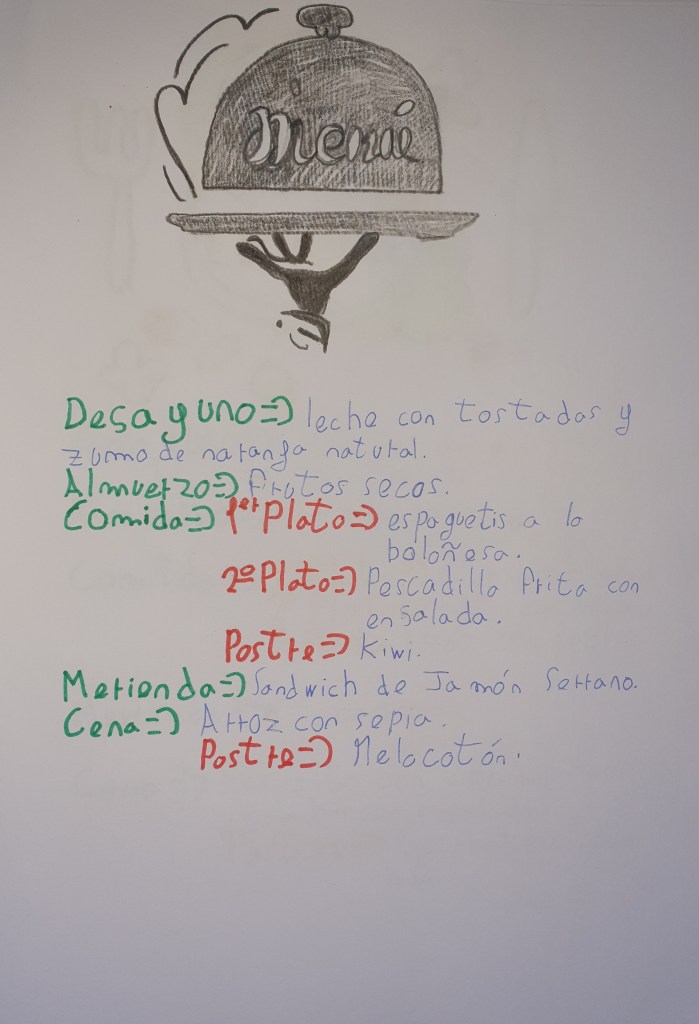 Menú
Desayuno=) leche con tostadas y
zumo de naranja natural.
Almuerzo=) frutos secos.
Comida=) 1er Plato=) espaguetis a la
boloñesa.
2º Plato=) Pescadilla frita con
ensalada.
Postre=) Kiwi.
Merienda=) Sandwich de Jamón Serrano.
Cena=) Arroz con sepia.
Postre=) Melocotón.